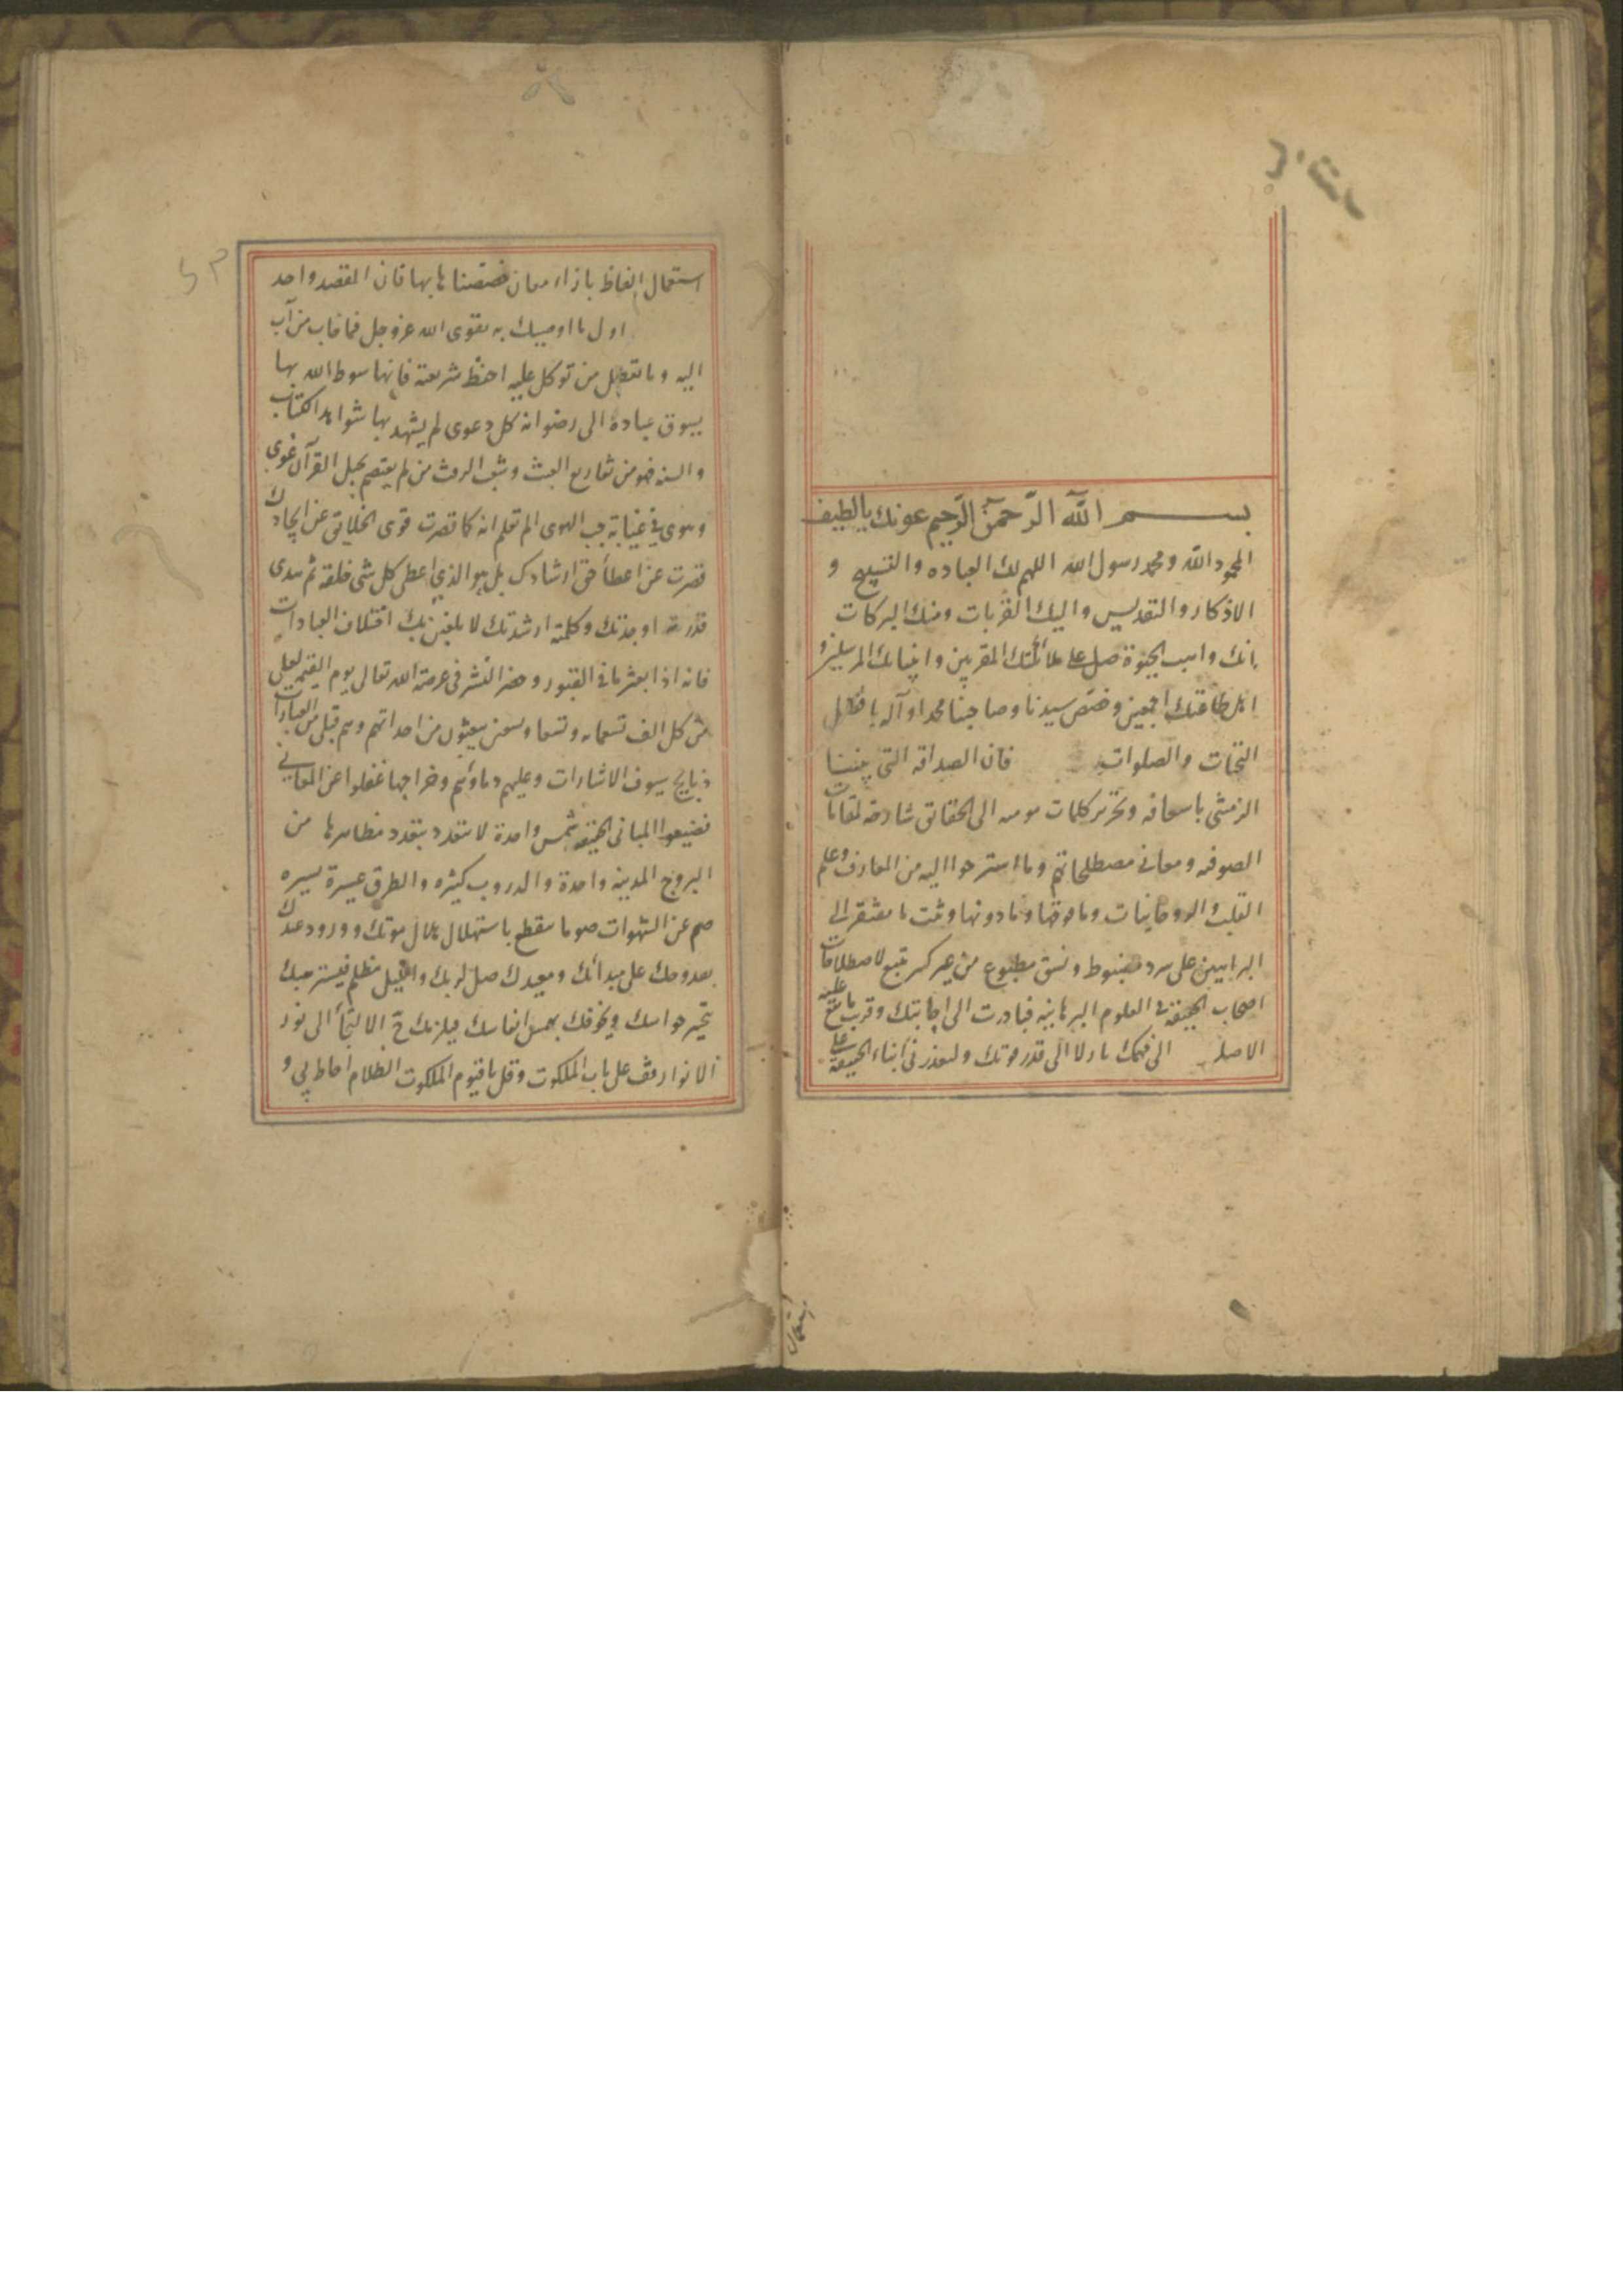 بسم الله الرحمن الرحيم عونك يا لطيف
المحمود الله ومحمد رسول الله اللهم لك العباده والتسبيح و
الاذكار والتقديس واليك القربات ومنك البركات
بانك واهب الحيوة صل على ملائكتك المقربين وانبيائك المرسلين و
اهل طاعتك اجمعين وخصص سيدنا وصاحبنا محمدا وآله بافضل
التحيات والصلوات فان الصداقه التي بيننا
الزمتني باسعافه وتحرير كلمات مومه الى الحقائق شارحه لمقامات
الصوفيه ومعاني مصطلحاتهم وما استرحوا اليه من المعارف وعلم
القلب والروحانيات وما فوقها وما دونها وثبت ما يفتقر الى
البراهين على سرد مضبوط ونسق مطبوع من غير كسر تتبع لاصطلاحات
اصحاب الحقيقة في العلوم البرهانيه فبادرت الى اجابتك وقربت ما يقع عليه
الاصل الى فهمك نازلا الى قدر قوتك وليعذرني ابناء الحقيقة على
استعمال
استعمال الفاظ بازاء معان خصصناها بها فان المقصد واحد
اول ما اوصيك به تقوى الله عز وجل فما خاب من آب
اليه وما تعطل من توكل عليه احفظ شريعته فانها سوط الله بها
يسوق عباده الى رضوانه كل دعوى لم يشهد بها شواهد الكتاب
والسنه فهو من تفاريع العبث وشعب الرفث من لم يعتصم بحبل القرآن غوى
وهوى في غيابة جب الهوى الم تعلم انه كما قصرت قوى الخلايق عن ايجادك
قصرت عن اعطأ حق ارشادك بل هو الذي اعطى كل شى خلقه ثم هدى
قدرته اوجدتك وكلمته ارشدتك لا يلعبن بك اختلاف العبادات
فانه اذا بعثر ما في القبور وحضر البشر في عرصة الله تعالى يوم القيمه لعل
من كل الف تسعمايه وتسعا وتسعين يبعثون من اجداثهم وهم قتلى من العبارات
ذبايح سيوف الاشارات وعليهم دماؤهم وجراحها غفلوا عن المعاني
فضيعوا المباني الحقيقه شمس واحدة لا تتعدد بتعدد مظاهرها من
البروج المدينه واحدة والدروب كثيره والطرق عسيرة يسيره
صم عن الشهوات صوما ينقطع باستهلال هلال موتك وورود عيدك
بقدومك على مبدائك ومعيدك صل لربك والليل مظلم فيستر حبك
تحير حواسك ويخوفك بهمس انفاسك فيلزمك حق الالتجأ الى نور
الانوار وقف على باب الملكوت وقل يا قيوم الملكوت الظلام احاط بي و